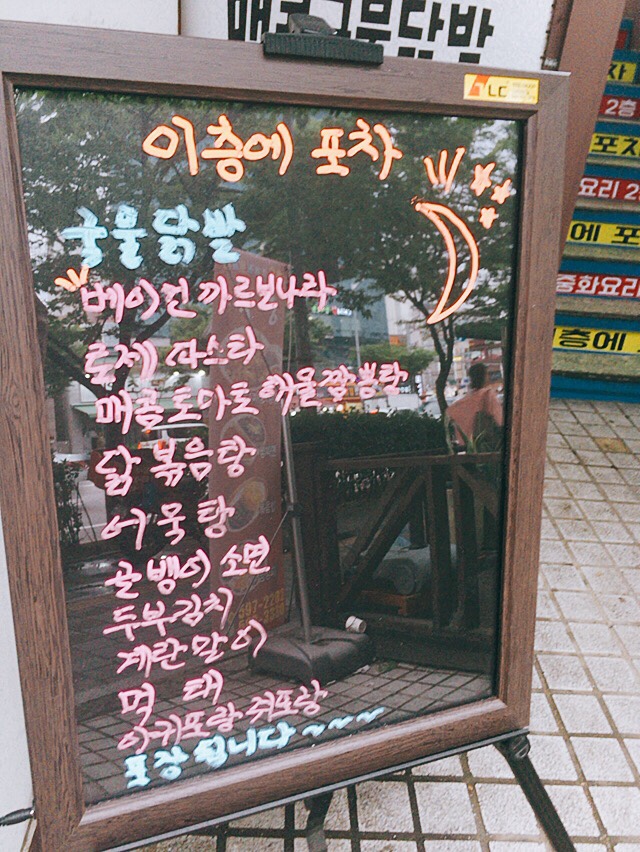 매콤국물닭발
LC
이층에 포차
국물닭발
베이컨 까르보나라
로제 파스타
매콤토마토해물짬뽕탕
닭볶음탕
어묵탕
골뱅이 소면
두부김치
계란말이
먹태
아귀포랑 쥐포랑
포장됩니다~~~
차
2층
포차
요리 2
에 포
중화요리
층에